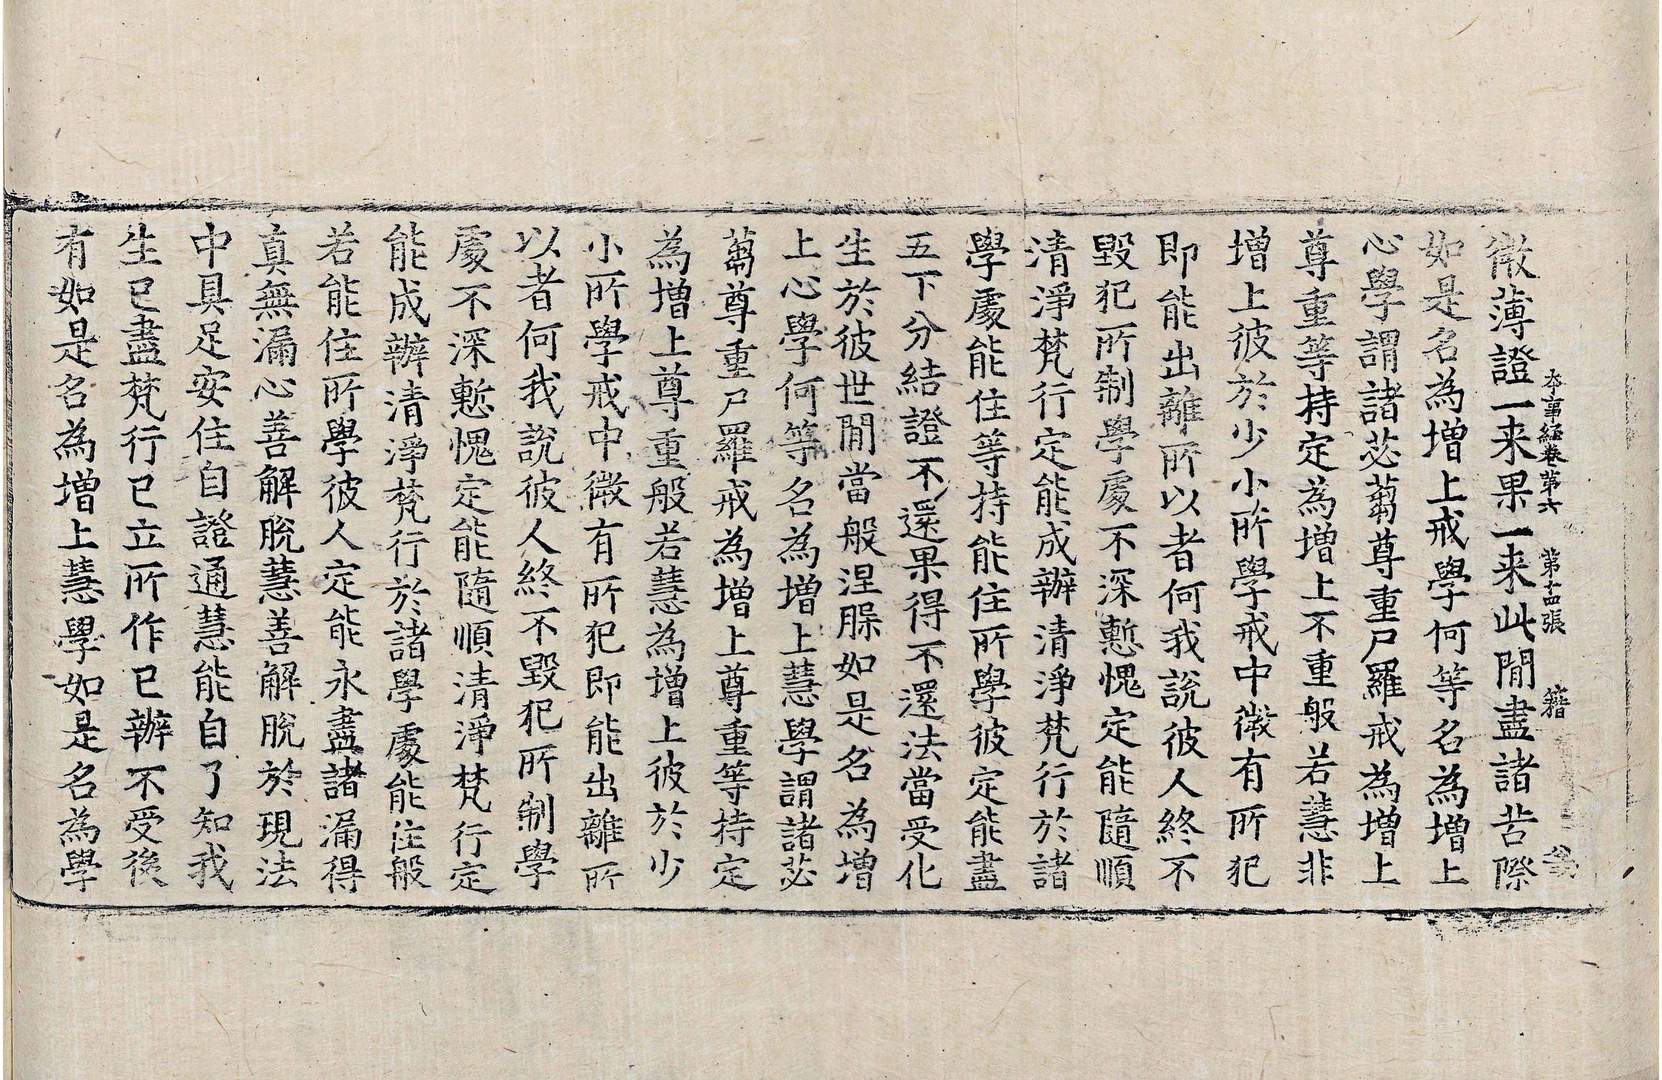 本事經卷第六 第十四張 簪
微薄證一来果一来此閒盡諸苦際
如是名為增上戒學何等名為增上
心學謂諸苾蒭尊重尸羅戒為增上
尊重等持定為增上不重般若慧非
增上彼於少小所學戒中微有所犯
即能出離所以者何我說彼人終不
毀犯所制學處不深慙愧定能隨順
清淨梵行定能成辦清淨梵行於諸
學處能住等持能住所學彼定能盡
五下分結證不還果得不還法當受化
生於彼世閒當般涅脲如是名為增
上心學何等名為增上慧學謂諸苾
蒭尊重尸羅戒為增上尊重等持定
為增上尊重般若慧為增上彼於少
小所學戒中微有所犯即能出離所
以者何我說彼人終不毀犯所制學
處不深慙愧定能隨順清淨梵行定
能成辦清淨梵行於諸學處能住般
若能住所學彼人定能永盡諸漏得
真無漏心善解脫慧善解脫於現法
中具足安住自證通慧能自了知我
生已盡梵行已立所作已辦不受後
有如是名為增上慧學如是名為學